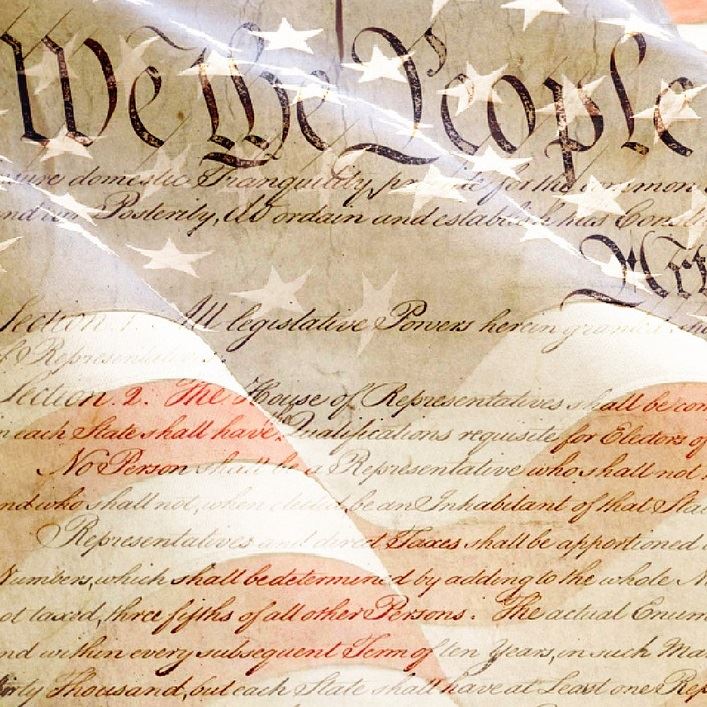 We the People
sure domestic Tranquility, provide for the common
and our Posterity, do ordain and establish this Const
Art
Section. 1. All legislative Powers herein granted
of Representatives.
Section. 2. The House of Representatives shall be com
in each State shall have Qualifications requisite for Electors of
No Person shall be a Representative who shall not
and who shall not, when elected, be an Inhabitant of that Sta
Representatives and direct Taxes shall be apportioned
Numbers, which shall be determined by adding to the whole N
not taxed, three fifths of all other Persons. The actual Enum
and within every subsequent Term of ten Years, in such Man
thirty Thousand, but each State shall have at Least one Rep